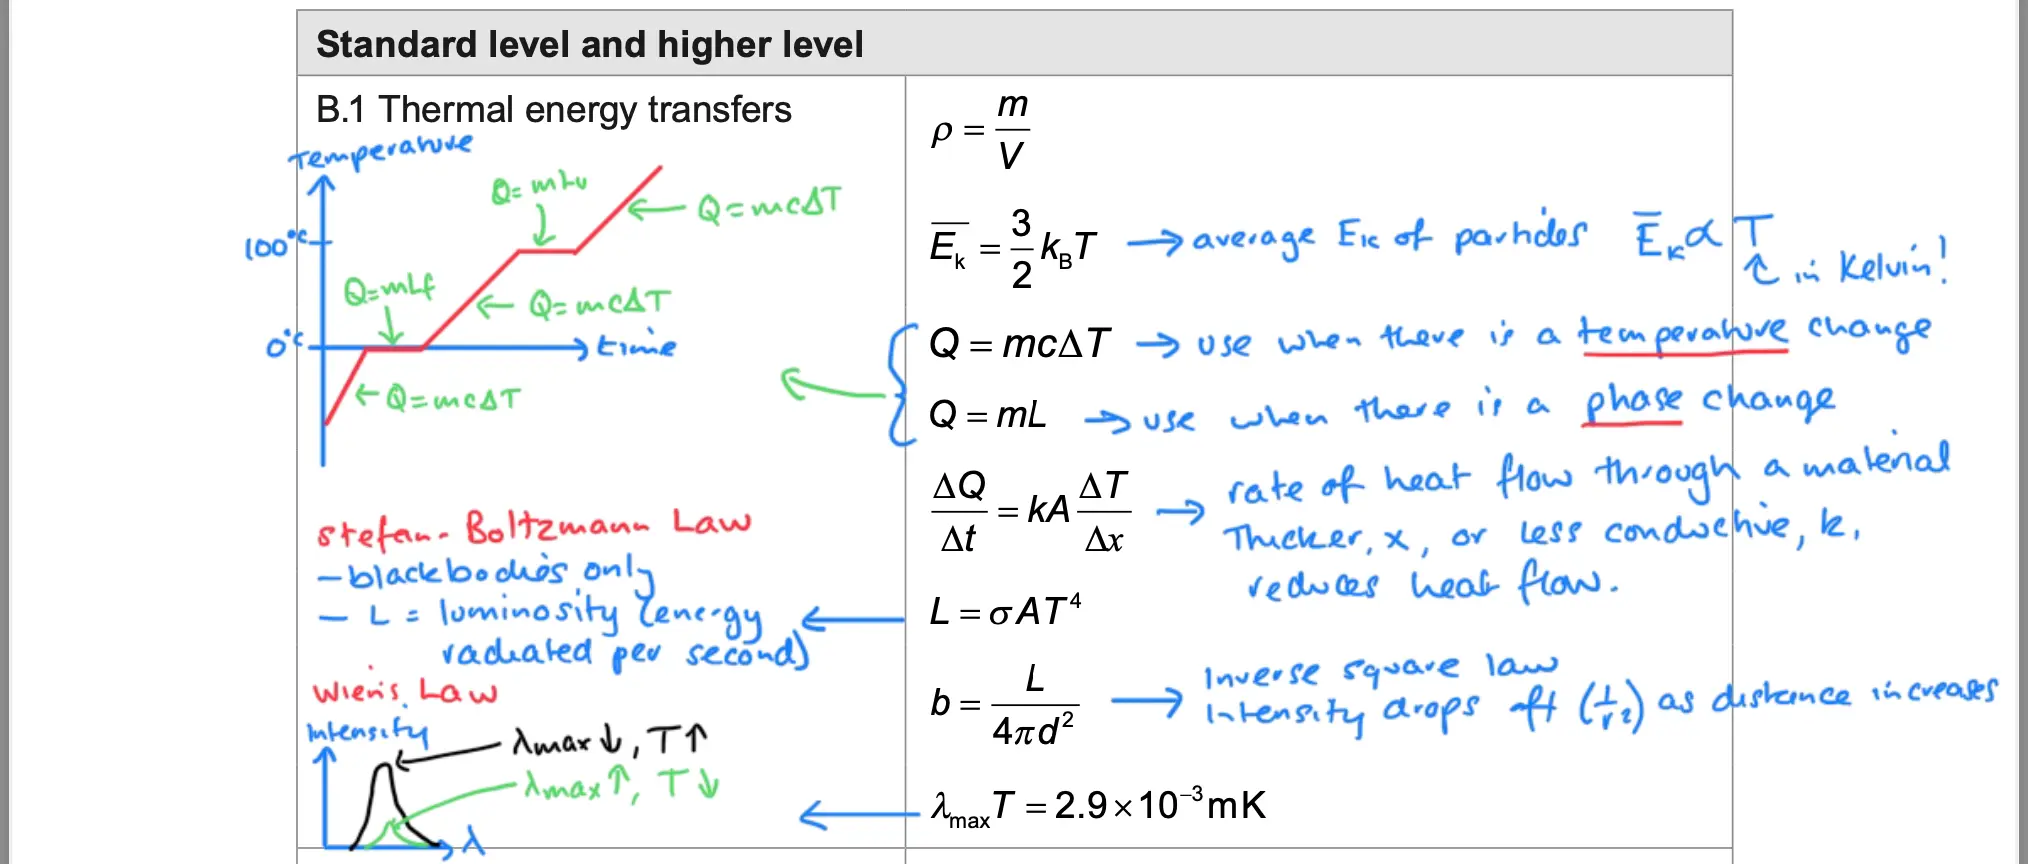 Standard level and higher level
B.1 Thermal energy transfers
Temperature
100°C
0°C
time
Q=mcΔT
Q=mLf
Q=mcΔT
Q=mLv
Q=mcΔT
Stefan-Boltzmann Law
- blackbodies only
- L = luminosity (energy
radiated per second)
Wien's Law
Intensity
λmax↓, T↑
λmax↑, T↓
λ
ρ = m/V
E̅k = 3/2 kBT → average EK of particles E̅K ∝ T
↑ in Kelvin!
Q = mcΔT → use when there is a temperature change
Q = mL → use when there is a phase change
ΔQ/Δt = kA ΔT/Δx → rate of heat flow through a material
Thicker, x, or less conductive, k,
reduces heat flow.
L = σAT⁴
b = L/4πd² → Inverse square law
Intensity drops off (1/r²) as distance increases
λmaxT = 2.9×10⁻³ mK